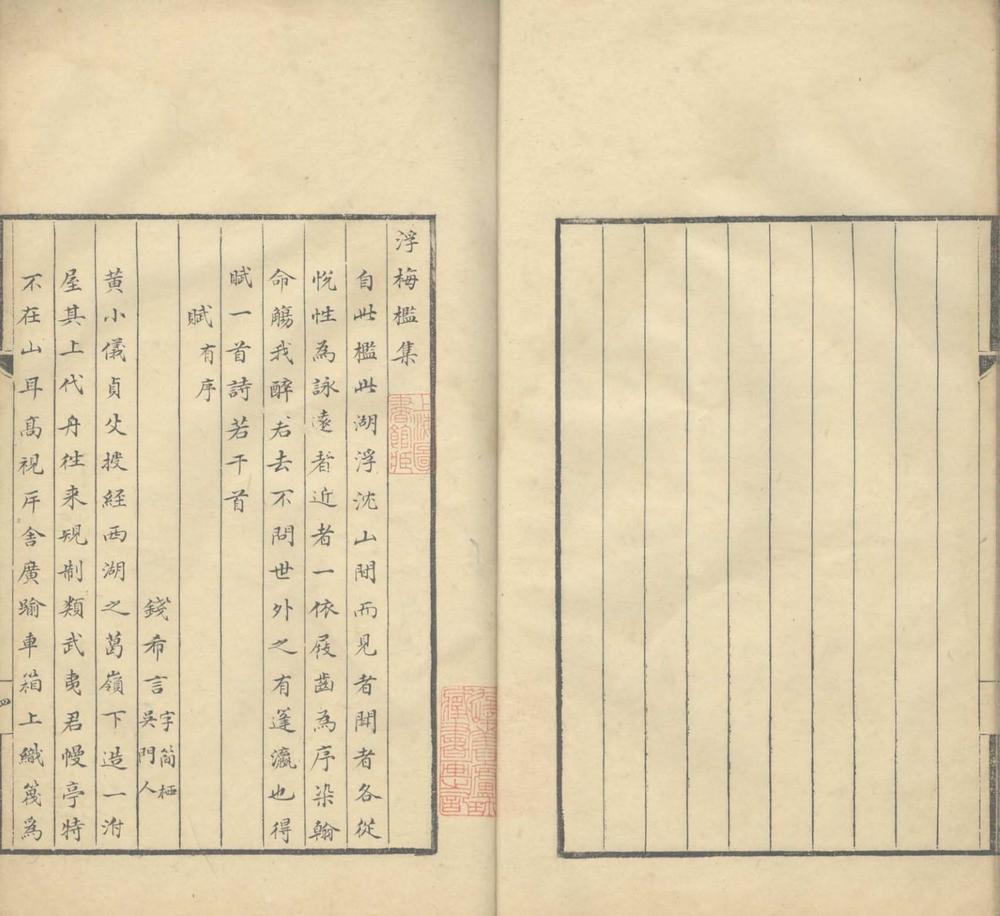 浮梅檻集
自此檻此湖浮沈山間而見者聞者各從
悅性為詠遠者近者一依屐齒為序染翰
命觴我醉君去不問世外之有蓬瀛也得
賦一首詩若干首
賦有序
錢希言字簡栖吳門人
黃小儀貞父授經西湖之葛嶺下造一泭
屋其上代舟徃来規制類武夷君幔亭特
不在山耳高視斥舍廣踰車箱上織篾為
四
上海圖書館藏